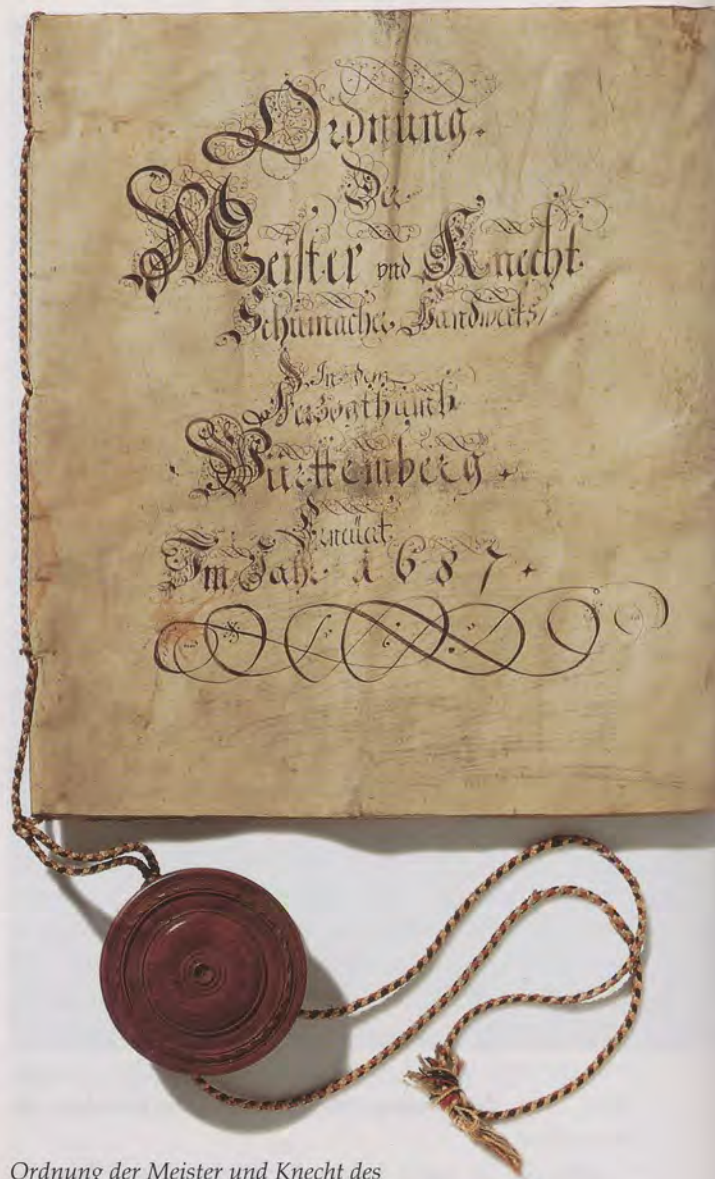 Ordnung.
Der
Meister vnd Knecht
Schumacher Handwerks/
In dem
Herzogthumb
Württemberg.
Erneüert
Im Jahr 1687.
Ordnung der Meister und Knecht des